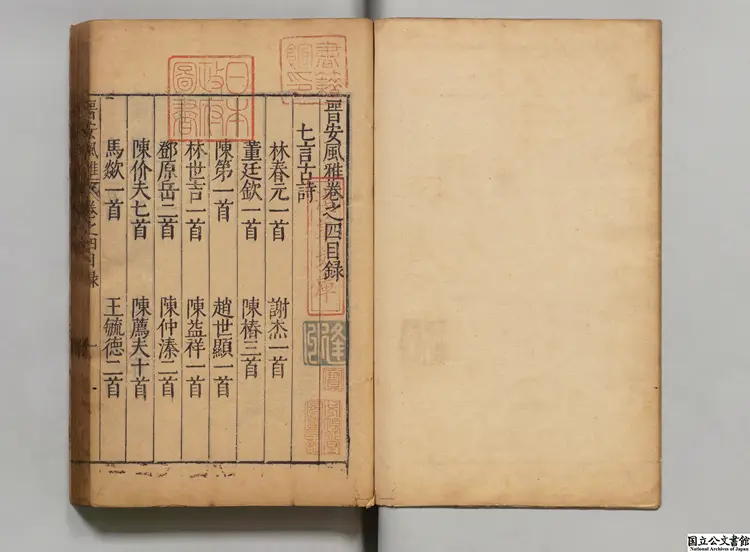 晋安風雅卷之四目録
七言古詩
林春元一首 謝杰一首
董廷欽一首 陳椿三首
陳第一首 趙世顯一首
林世吉一首 陳益祥一首
鄧原岳二首 陳仲溱二首
陳价夫七首 陳薦夫十首
馬歘一首 王毓德二首
晋安風雅 卷之四目録
日本
政府
圖書
国立公文書館
National Archives of Japan